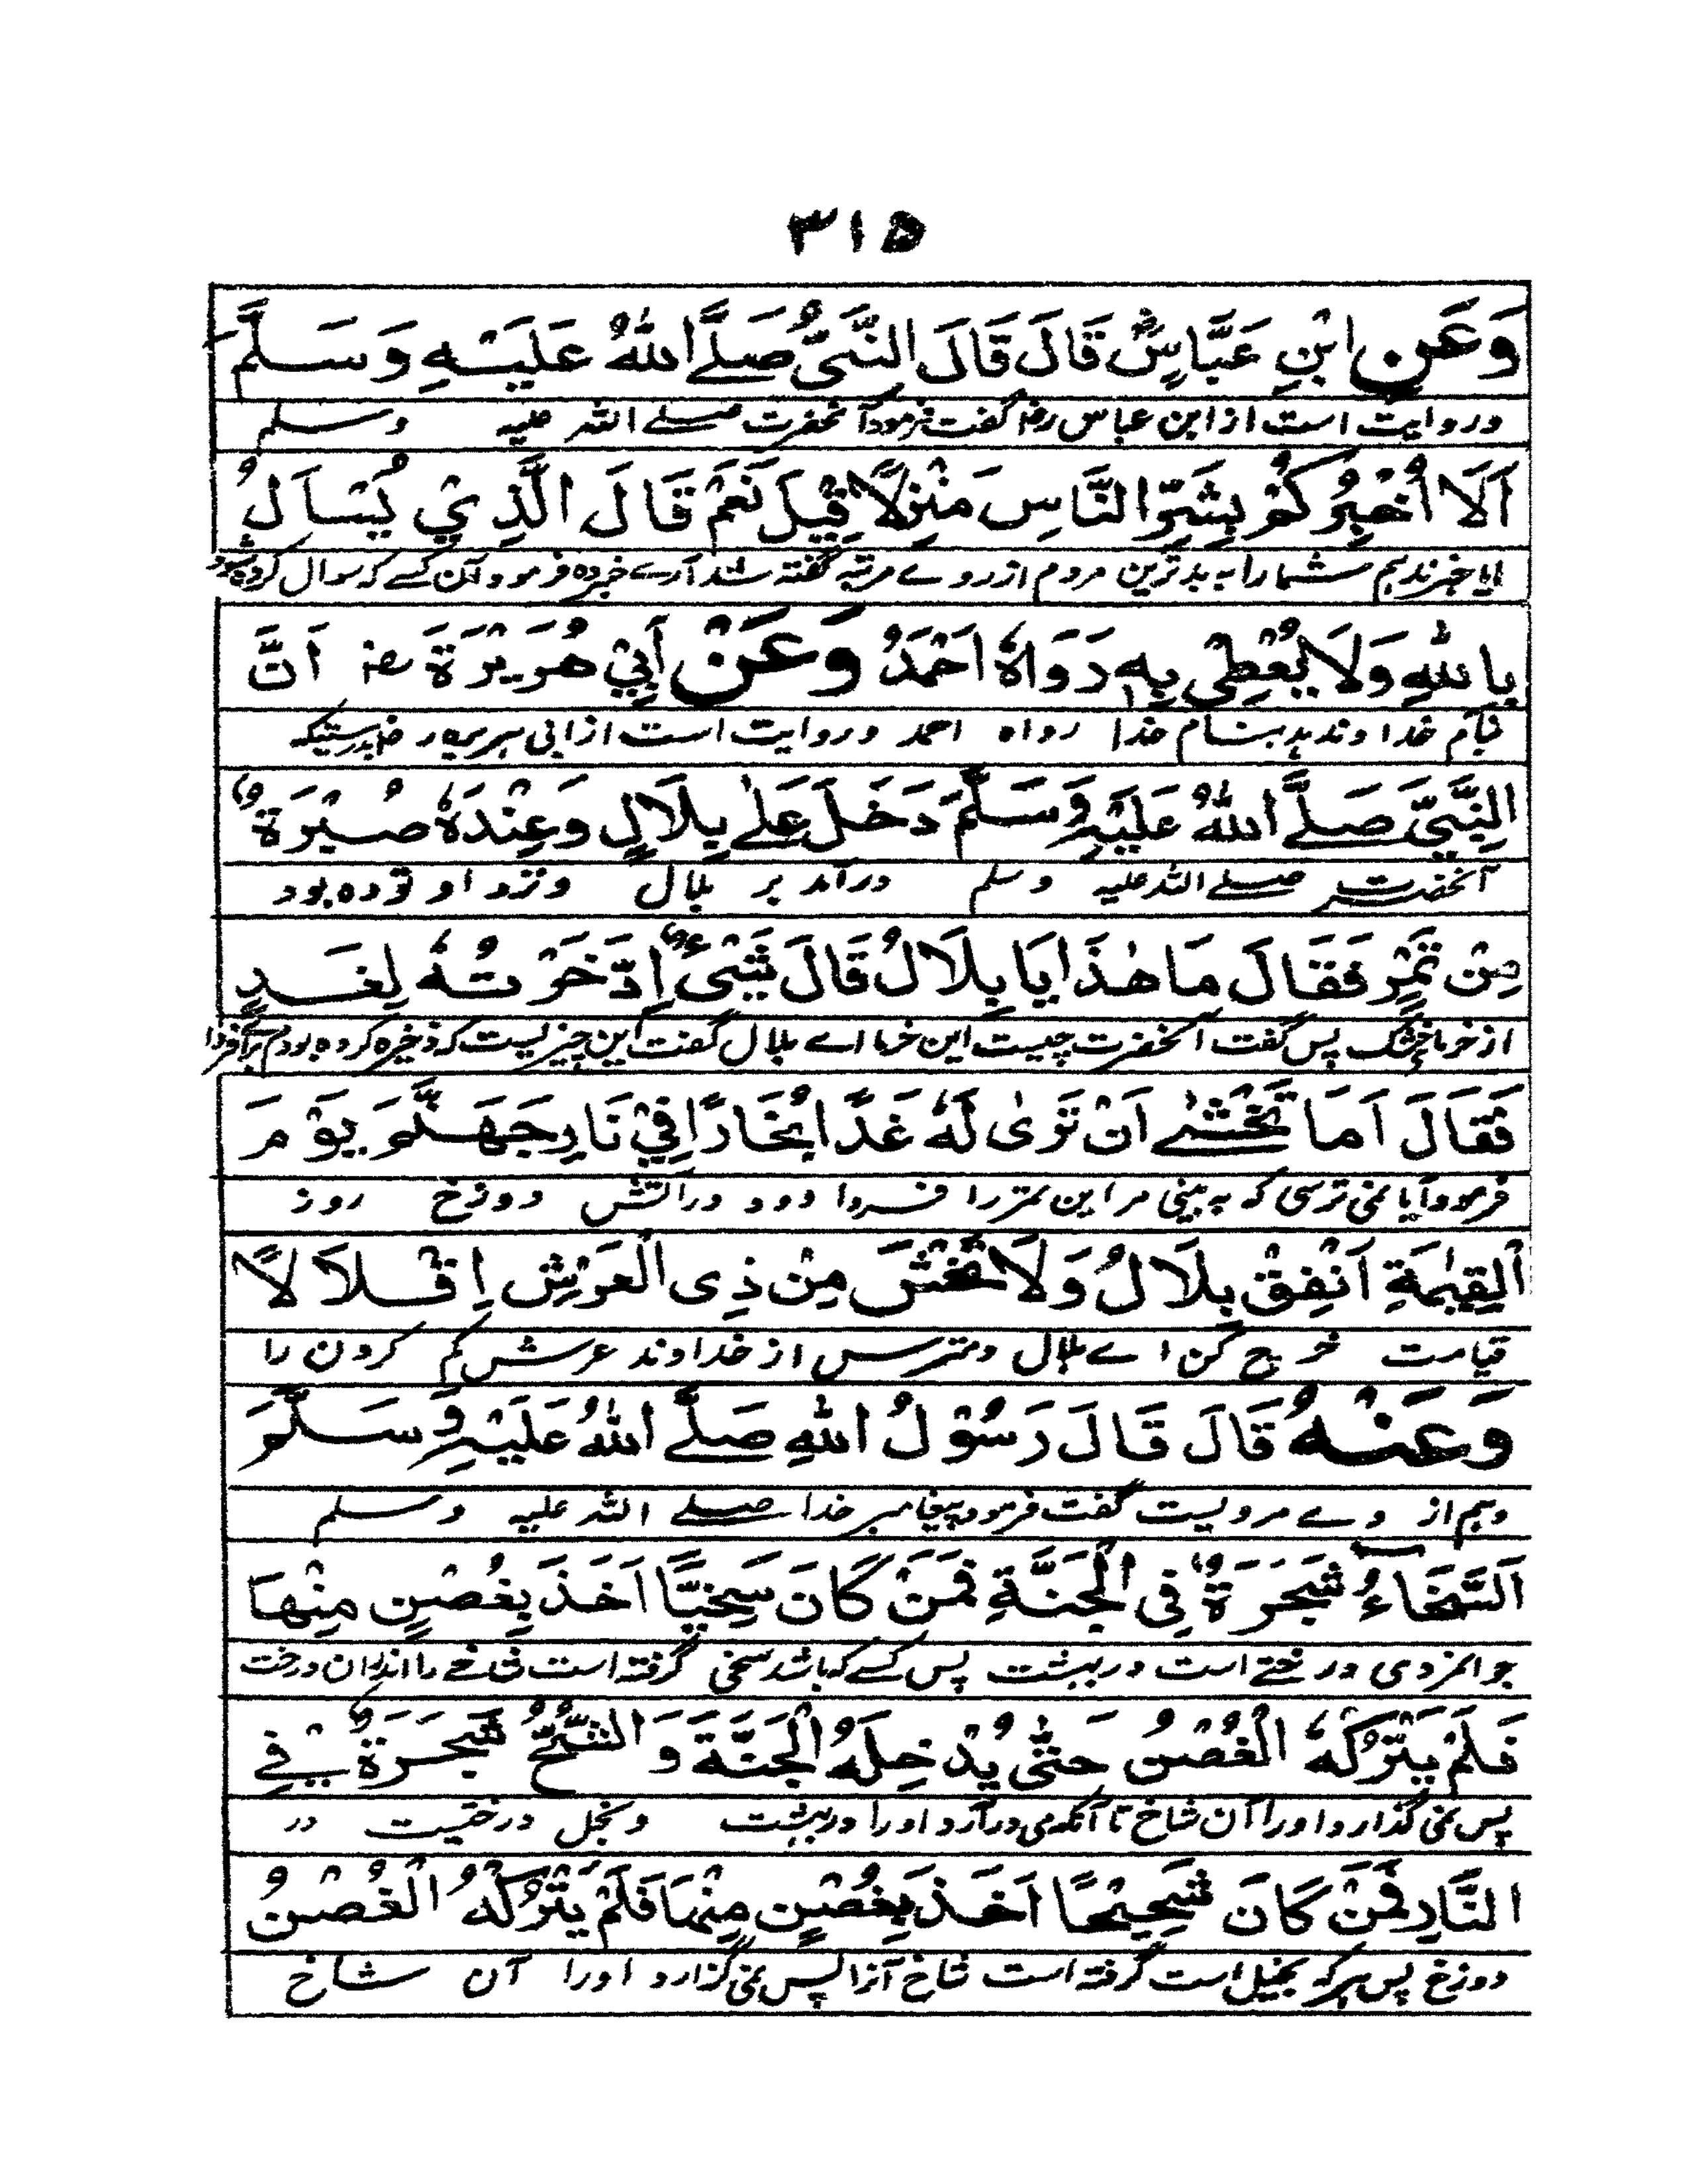 ۳۱۵
وَعَنِ ابْنِ عَبَّاسٍ رض قَالَ قَالَ النَّبِيُّ صَلَّے اللهُ عَلَيْهِ وَسَلَّمَ
و روایت است از ابن عباس رضہ گفت فرمود آنحضرت صلے اللہ علیہ وسلم
اَلَا اُخْبِرُكُمْ بِشَرِّ النَّاسِ مَنْزِلًا قِيْلَ نَعَمْ قَالَ الَّذِيْ يُسْاَلُ
ایا خبر ندہم شمارا بہ بدترین مردم از روے مرتبہ گفتہ شد آرے خبر دہ فرمود آن کسے کہ سوال کردہ شود
بِاللهِ وَلَا يُعْطِیْ بِهٖ رَوَاهُ اَحْمَدُ وَعَنْ اَبِيْ هُرَيْرَةَ رض اَنَّ
بنام خدا و ندہد بنام خدا رواہ احمد و روایت است از ابی ہریرہ رض بدرستیکہ
النَّبِيَّ صَلَّے اللهُ عَلَيْهِ وَسَلَّمَ دَخَلَ عَلٰے بِلَالٍ وَعِنْدَهٗ صُبْرَةٌ
آنحضرت صلے اللہ علیہ وسلم درآمد بر بلال و نزد او تودہ بود
مِنْ تَمْرٍ فَقَالَ مَا هٰذَا يَا بِلَالُ قَالَ شَيْئٌ اِدَّخَرْتُهٗ لِغَدٍ
از خرما خشک پس گفت آنحضرت چیست این خرما اے بلال گفت این چیزیست کہ ذخیرہ کردہ بودم برائے فردا
فَقَالَ اَمَا تَخْشٰے اَنْ تَرٰى لَهٗ غَدًا بُخَارًا فِيْ نَارِ جَهَنَّمَ يَوْمَ
فرمود آیا نمی ترسی کہ بہ بینی مر این تمر را فردا دود در آتش دوزخ روز
الْقِيٰمَةِ اَنْفِقْ بِلَالُ وَلَا تَخْشَ مِنْ ذِى الْعَرْشِ اِقْلَالًا
قیامت خرچ کن اے بلال و مترس از خداوند عرش کم کردن را
وَعَنْهُ قَالَ قَالَ رَسُوْلُ اللهِ صَلَّے اللهُ عَلَيْهِ وَسَلَّمَ
و ہم از وے مرویست گفت فرمود پیغامبر خدا صلے اللہ علیہ وسلم
اَلسَّخَاءُ شَجَرَةٌ فِى الْجَنَّةِ فَمَنْ كَانَ سَخِيًّا اَخَذَ بِغُصْنٍ مِنْهَا
جوانمردی درختے است در بہشت پس کسے کہ باشد سخی گرفتہ است شاخے را از ان درخت
فَلَمْ يَتْرُكْهُ الْغُصْنُ حَتّٰى يُدْخِلَهُ الْجَنَّةَ وَ الشُّحُّ شَجَرَةٌ فِے
پس نمی گذارد اورا آن شاخ تا آنکہ می درآرد اورا در بہشت و بخل درختیست در
النَّارِ فَمَنْ كَانَ شَحِيْحًا اَخَذَ بِغُصْنٍ مِنْهَا فَلَمْ يَتْرُكْهُ الْغُصْنُ
دوزخ پس ہر کہ بخیل است گرفتہ است شاخ آنرا پس نمی گزارد اورا آن شاخ